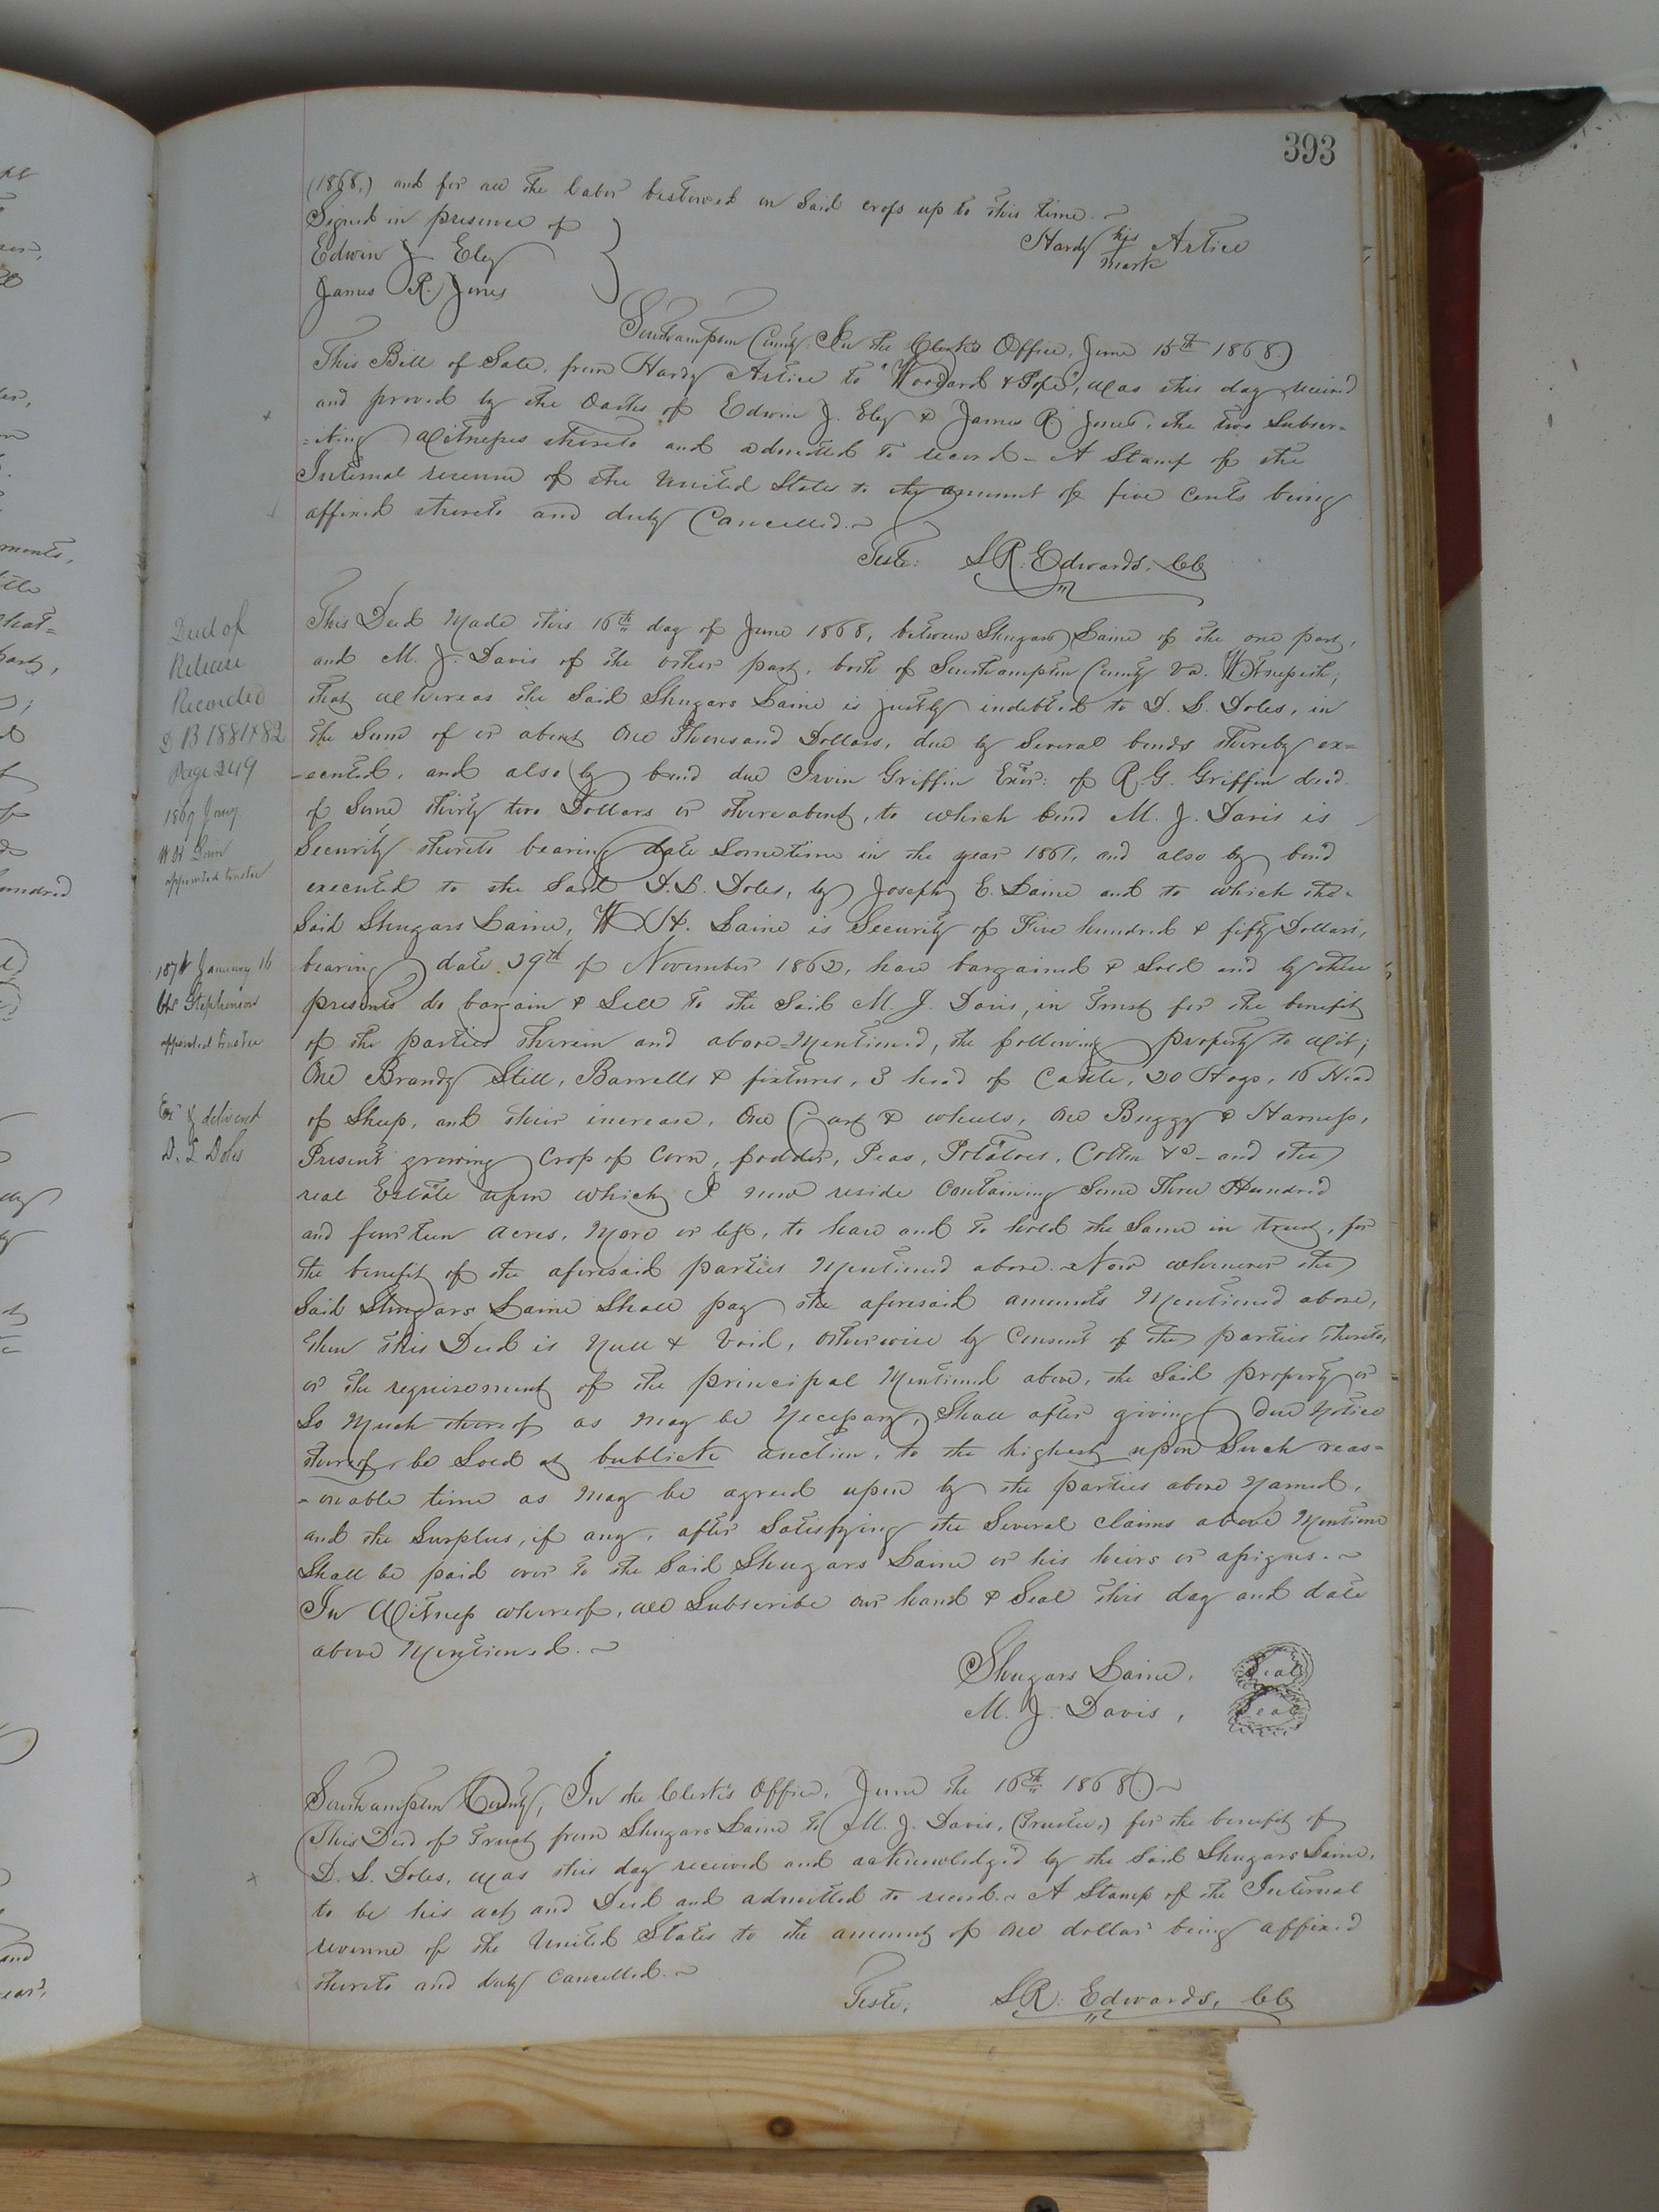 393
(1868,) and for all the labor bestowed on said crops up to this time.
Signed in presence of
Hardy his mark Artice
Edwin J. Eley
James R. Jones
Southampton County: In the Clerk's Office, June 15th 1868.
This Bill of Sale, from Hardy Artice to "Woodard & Pope", was this day received
and proved by the Oaths of Edwin J. Eley & James R. Jones, the two Subscr=
=ibing Witnesses thereto and admitted to record - A Stamp of the
Internal revenue of the United States to the amount of five Cents being
affixed thereto and duly Cancelled.
Teste: L R. Edwards, CC
This Deed Made this 16th day of June 1868, between Shugars Laine of the one part,
and M. J. Davis of the other part, both of Southampton County Va. Witnesseth;
that whereas the Said Shugars Laine is justly indebted to D. L. Doles, in
the Sum of or about One Thousand Dollars, due by Several bonds thereby ex=
=ecuted, and also by bond due Irvin Griffin Exor: of R. G. Griffin decd.
of Some thirty two Dollars or thereabout, to which bond M. J. Davis is
Security thereto bearing date Sometime in the year 1861, and also by bond
executed to the Said D. L. Doles, by Joseph E. Laine and to which the
Said Shugars Laine, W H. Laine is Security of Five hundred & fifty Dollars,
bearing date 29th of November 1862, have bargained & Sold and by these
presents do bargain & Sell to the Said M. J. Davis, in Trust for the benefit
of the parties therein and above=Mentioned, the following property to wit;
One Brandy Still, Barrells & fixtures, 3 head of Cattle, 20 Hogs, 16 Head
of Sheep, and their increase, One Cart & wheels, One Buggy & Harness,
Present growing Crop of Corn, fodder, Peas, Potatoes, Cotton &c - and the
real Estate upon which I now reside Containing Some Three Hundred
and fourteen acres, More or less, to have and to hold the Same in trust, for
the benefit of the aforesaid parties Mentioned above. Now whenever the
Said Shugars Laine Shall pay the aforesaid amounts Mentioned above,
then this Deed is Null & Void, otherwise by Consent of the parties thereto,
or the requirement of the principal Mentioned above, the Said property or
So Much thereof as may be Necessary, Shall after giving due Notice
thereof, be Sold at bublick auction, to the highest upon Such reas=
=onable time as may be agreed upon by the parties above Named,
and the Surplus, if any, after Satisfying the Several claims above Mentione
Shall be paid over to the Said Shugars Laine or his heirs or assigns.
In Witness whereof, we Subscribe our hand & Seal this day and date
above Mentioned.
Shugars Laine, Seal
M. J. Davis, Seal
Southampton County, In the Clerk's Office, June the 16th 1868.
This Deed of Trust from Shugars Laine to M. J. Davis, (Trustee,) for the benefit of
D. L. Doles, was this day received and acknowledged by the Said Shugars Laine,
to be his act and Deed and admitted to record. A Stamp of the Internal
revenue of the United States to the amount of One dollar being affixed
thereto and duly Cancelled.
Teste; L R. Edwards, CC
Deed of
Release
Recorded
D B 1881&82
Page 249
1869 Jany
appointed trustee
January 16
Stephenson
appointed trustee
Ex & delivered
D. L Doles